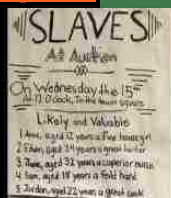 SLAVES
At Auction
On Wednesday the 15th
At 12 O'clock, In the town square
Likely and Valuable
1. aged 12 years a fine house girl
2 Eden, aged 24 years a great
3 aged 32 years a superior nurse
4 Sam, aged 18 years a field hand
5 Jordan, aged 22 years a great cook